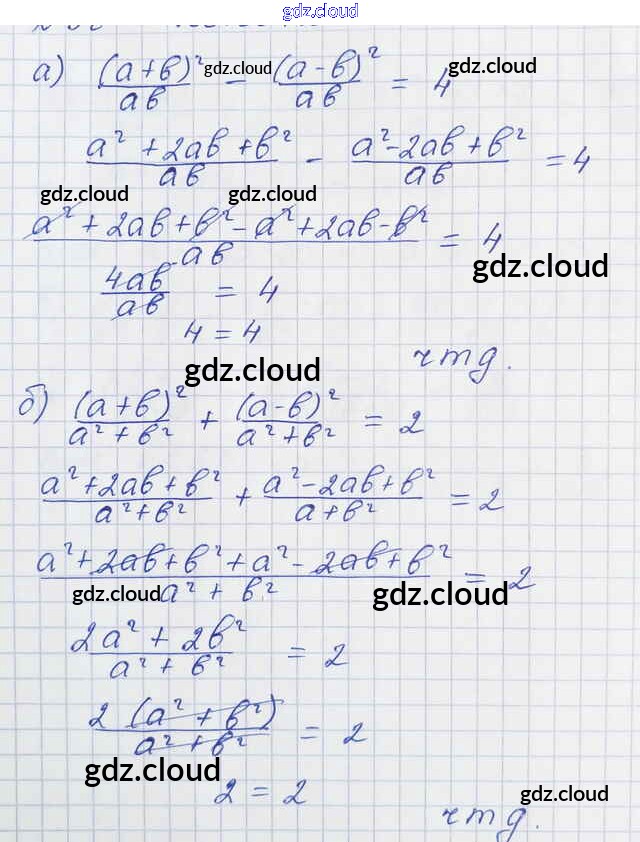 gdz.cloud
а) (а+в)²/ав - (а-в)²/ав = 4
gdz.cloud gdz.cloud
а² + 2ав + в²/ав - а² - 2ав + в²/ав = 4
gdz.cloud gdz.cloud
а² + 2ав + в² - а² + 2ав - в²/ав = 4
gdz.cloud
4ав/ав = 4
4 = 4
чтд.
gdz.cloud
б) (а+в)²/а² + в² + (а-в)²/а² + в² = 2
а² + 2ав + в²/а² + в² + а² - 2ав + в²/а + в² = 2
а² + 2ав + в² + а² - 2ав + в²/а² + в² = 2
gdz.cloud gdz.cloud
2а² + 2в²/а² + в² = 2
2 (а² + в²)/а² + в² = 2
gdz.cloud
2 = 2
gdz.cloud
чтд.